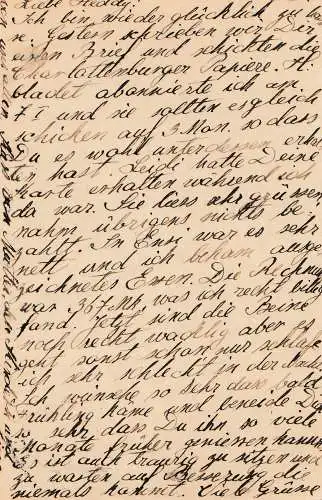 Liebe Heddy!
Ich bin wieder glücklich zu Hau
se. Gestern schrieben wir Dir
einen Brief und schickten die
Charlottenburger Papiere. H.
bladet abonnierte ich am
7 I und sie sollten es gleich
schicken auf 3 Mon. so dass
Du es wohl unterdessen erhal
ten hast. Leidi hatte Deine
Karte erhalten während ich
da war. Sie liess sehr grüssen
nahm übrigens nichts be-
zahlt. In war es sehr
nett und ich bekam ausge
zeichnetes Essen. Die Rechnung
war 367 Mk was ich recht billig
fand. Jetzt sind die Beine
noch recht wacklig aber es
geht sonst schon nur schlafe
ich sehr schlecht in der Nacht
Ich wünsche so sehr dass bald
Frühling käme und beneide Dich
so sehr dass Du ihn so viele
Monate früher geniessen kannst
Es ist auch traurig zu sitzen und
zu warten auf Besserung die
niemals kommt. Viele Grüsse